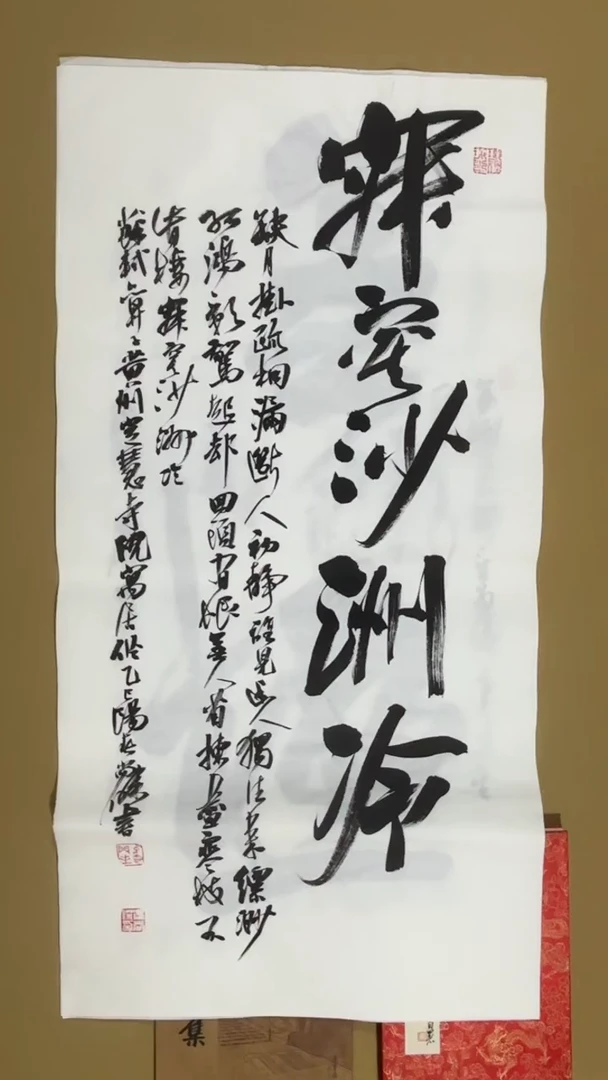 寂寞沙洲冷
缺月掛疏桐漏斷人初静誰見幽人獨往來縹緲
孤鴻影驚起却回頭有恨無人省揀盡寒枝不
肯棲寂寞沙洲冷
蘇軾卜算子黄州定慧寺院寓居作乙巳陽春書
集